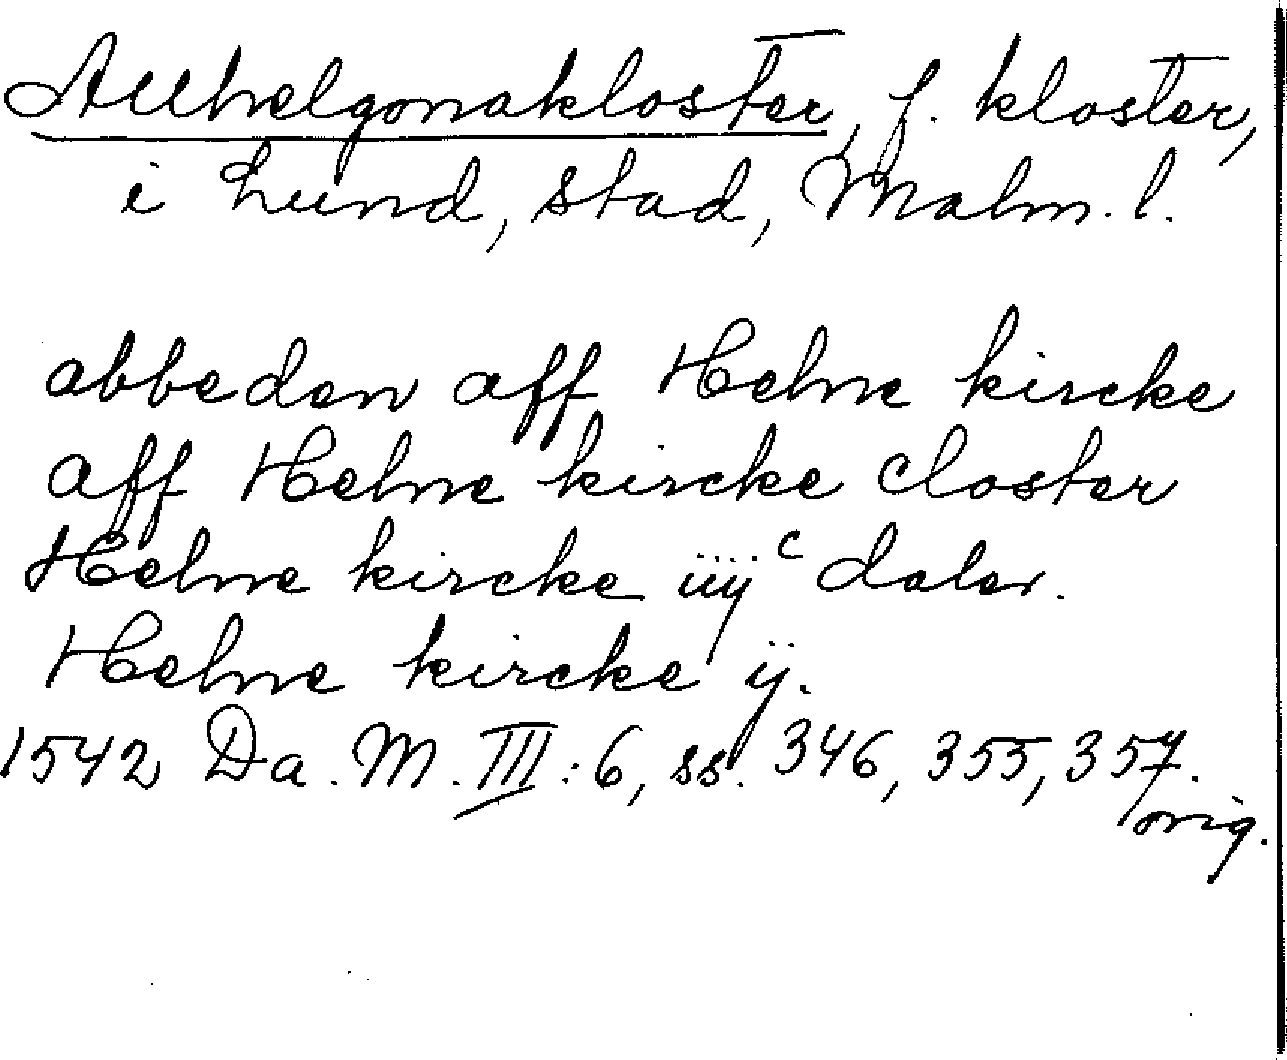 Allhelgonakloster, f. kloster,
i Lund, stad, Malm. l.
abbeden aff Helne kircke
aff Helne kircke closter
Helne kircke iiij c daler.
Helne kircke ij.
1542 Da. M. III: 6, ss. 346, 355, 357.
orig.